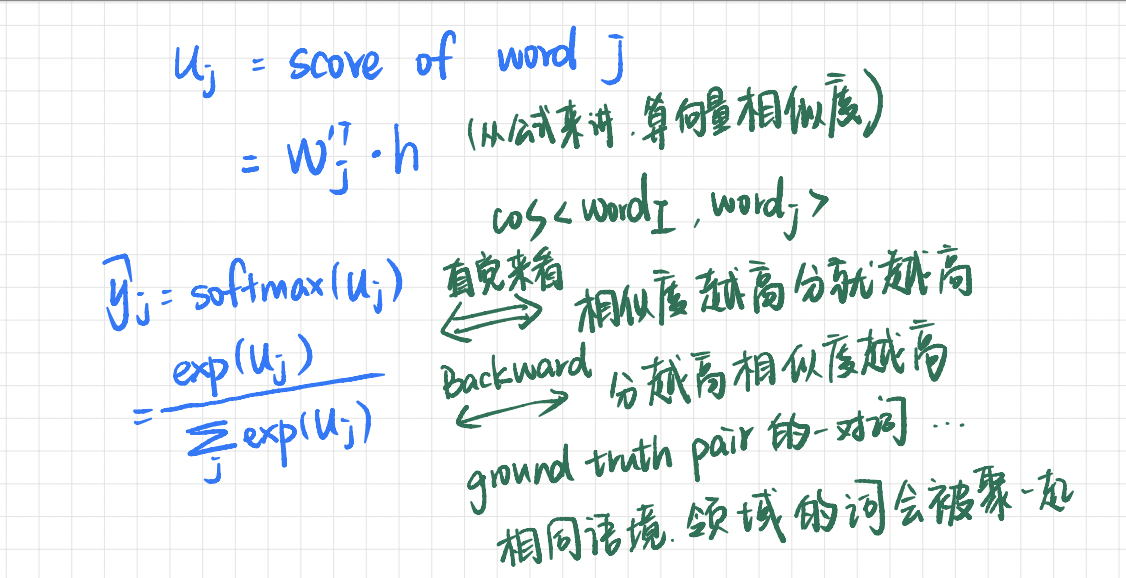 u_j = score of word j
= W'_j^T · h
(从公式来讲.算向量相似度)
cos<word_I, word_j>
y_j = softmax(u_j)
直觉来看
相似度越高分就越高
= exp(u_j) / Σ_j exp(u_j)
Backward
分越高相似度越高
ground truth pair 的一对词 ...
相同语境.领域的词会被聚一起